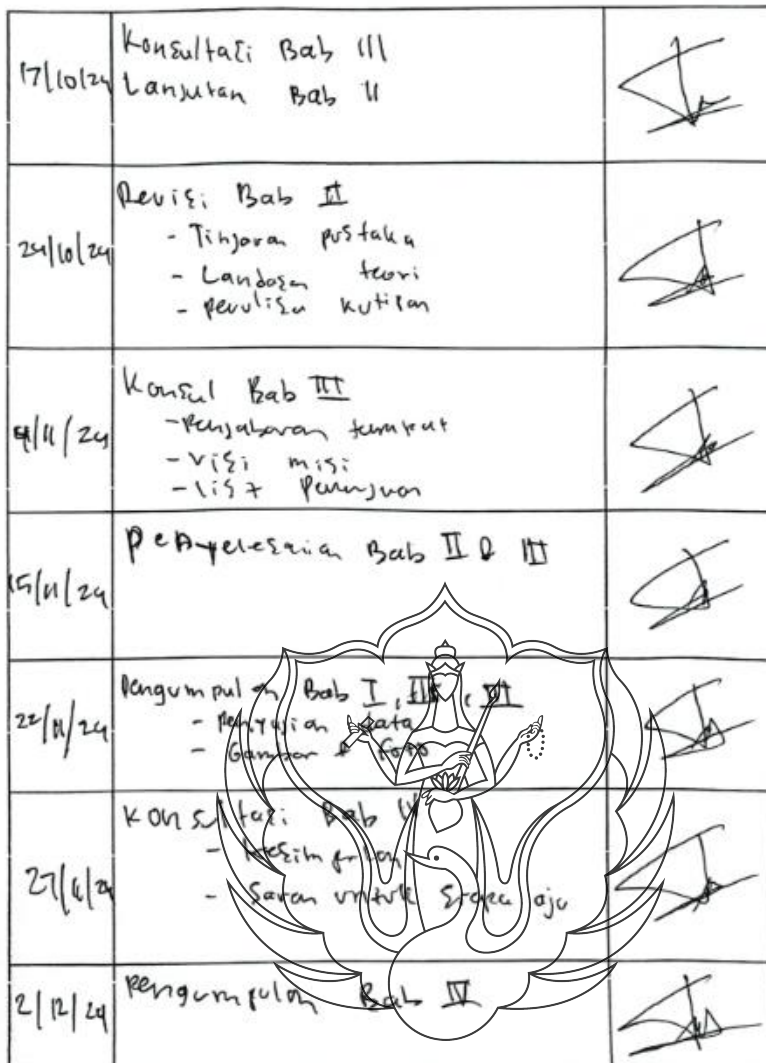 17/10/24
Konsultasi Bab III
Lanjutan Bab II
24/10/24
Revisi Bab II
- Tinjauan pustaka
- Landasan teori
- Penulisan kutipan
4/11/24
Konsul Bab III
- Penjabaran tempat
- Visi misi
- List
15/11/24
Penyelesaian Bab II & III
22/11/24
Pengumpulan Bab I, II, III
- Penyajian data
- Gambar & foto
27/11/24
Konsultasi Bab
- Kesimpulan
- Saran untuk siapa aja
2/12/24
Pengumpulan Bab IV